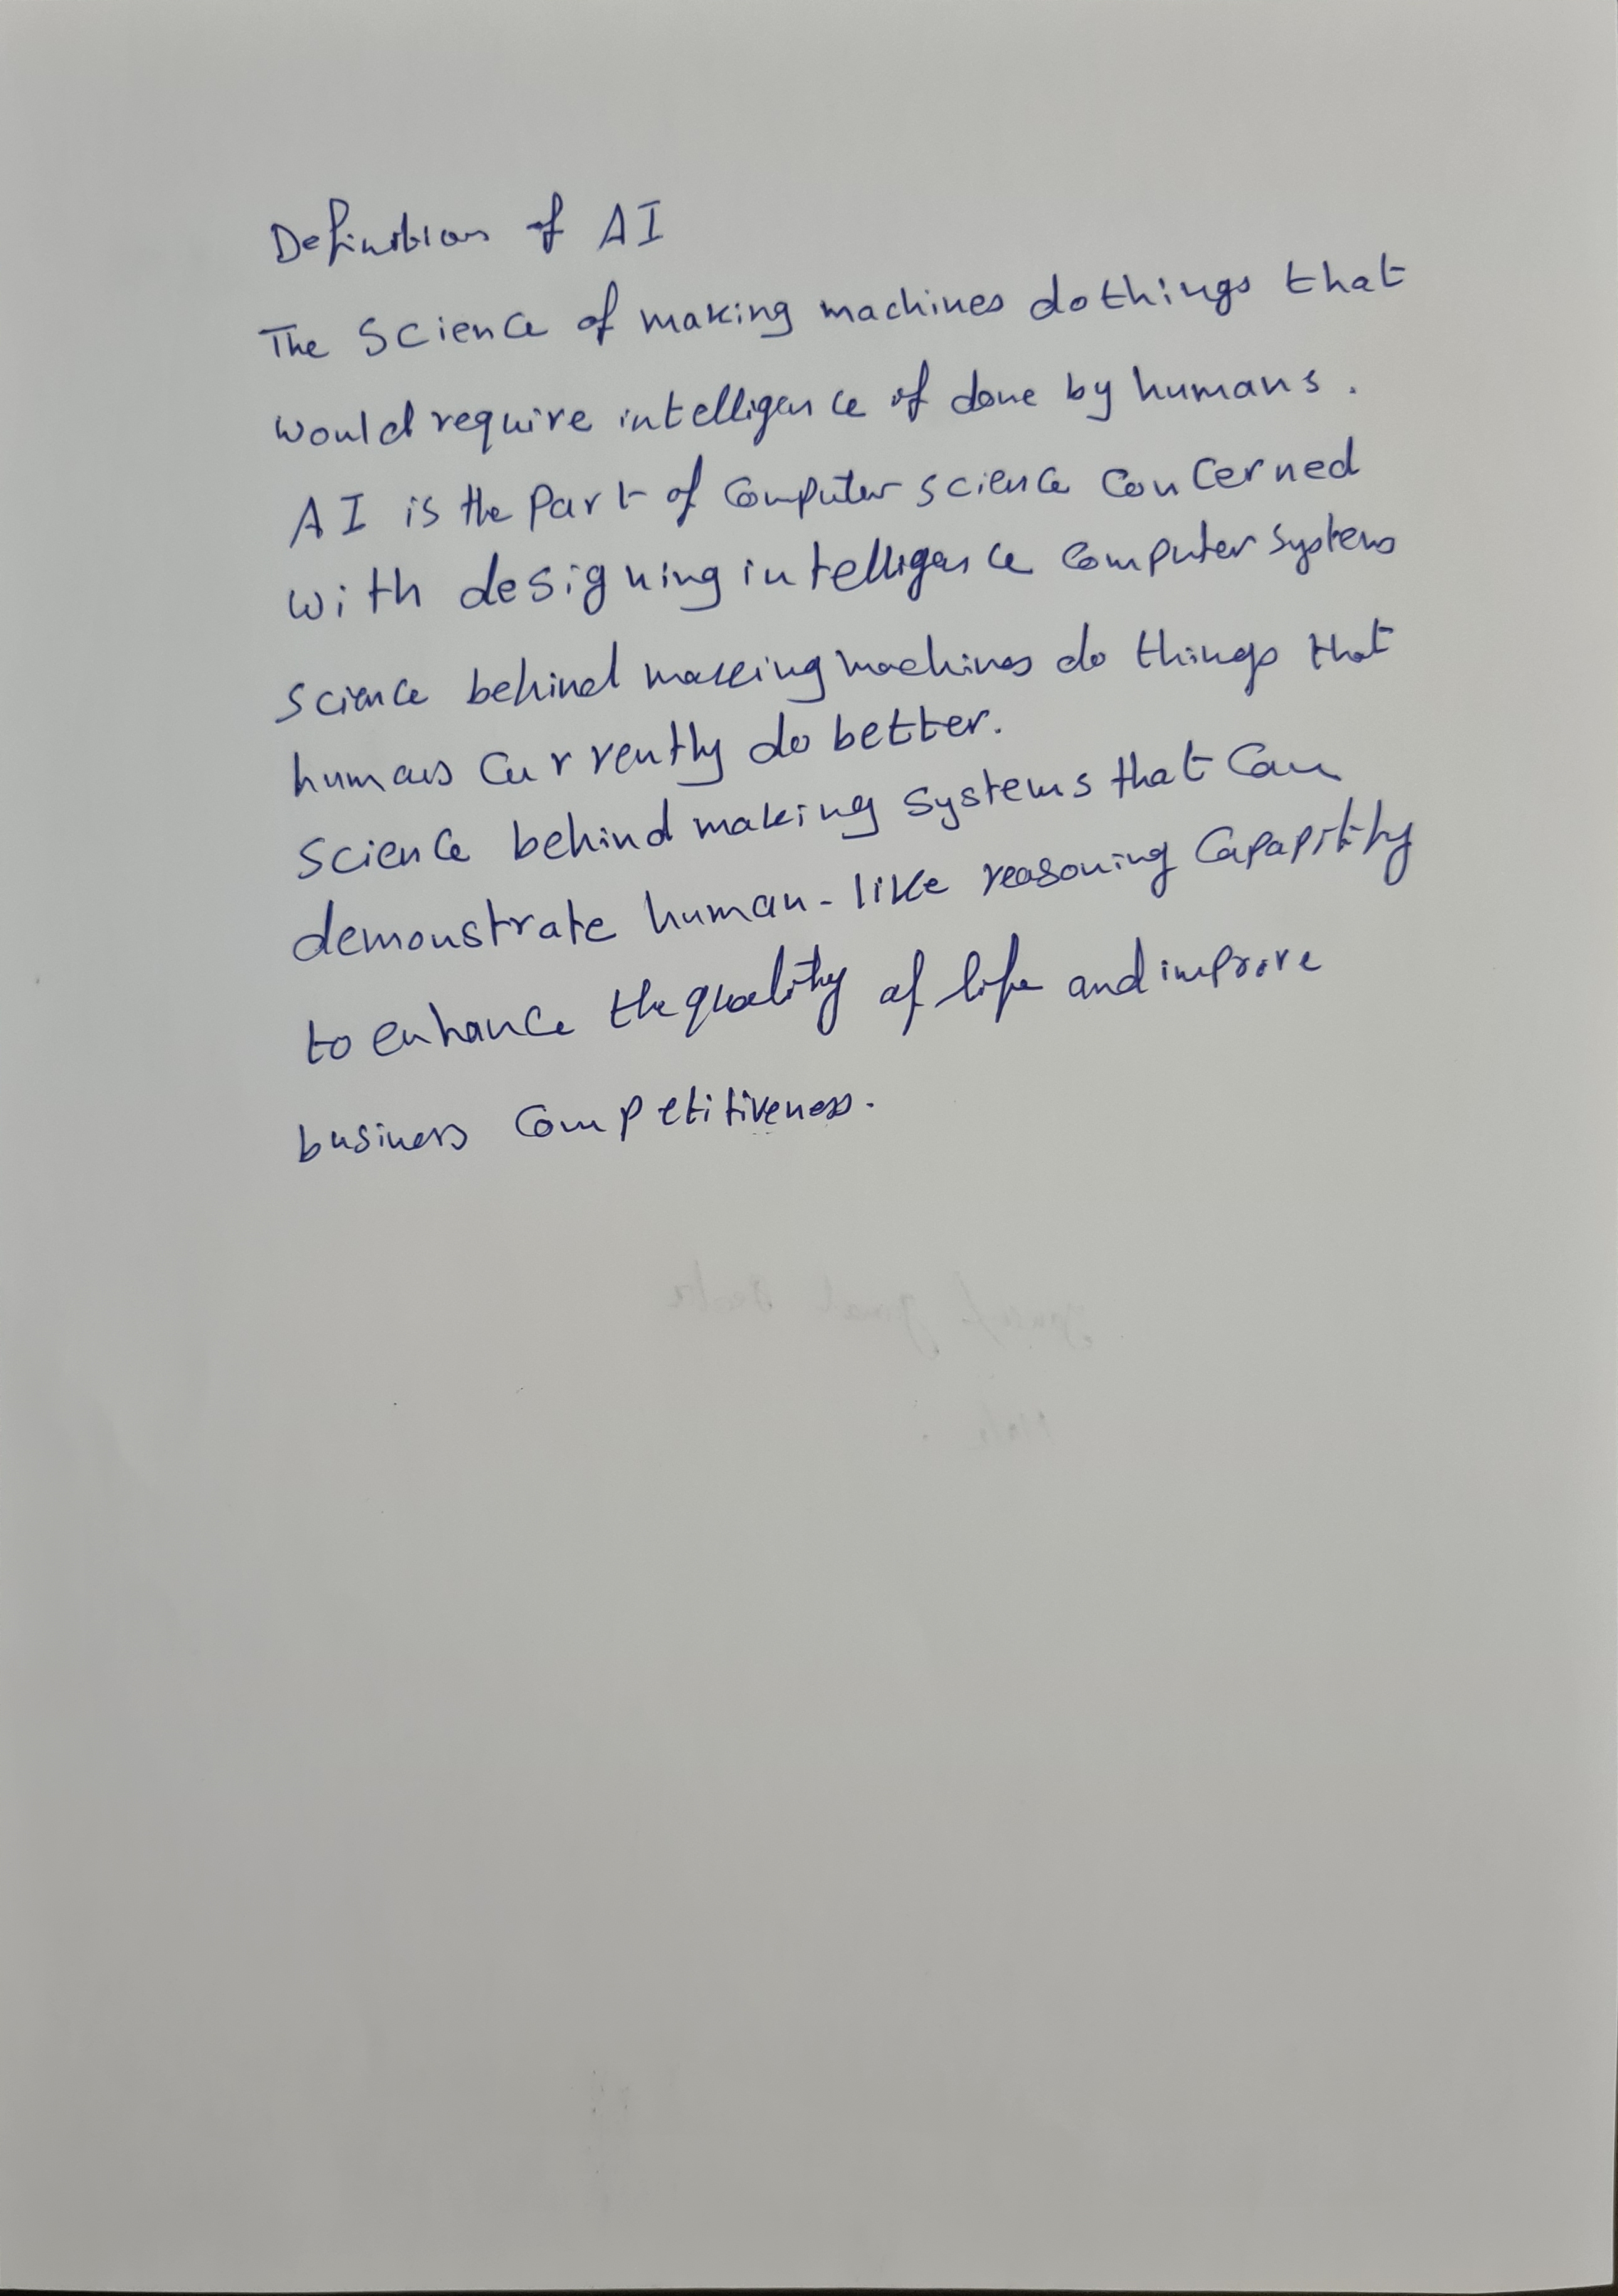 Definition of AI
The Science of making machines do things that
would require intelligence if done by humans.
AI is the Part of Computer science Concerned
with designing intelligence Computer Systems
Science behind making machines do things that
humans Currently do better.
Science behind making Systems that Can
demonstrate human-like reasoning Capapitity
to enhance the quality of life and improve
business Competitiveness.